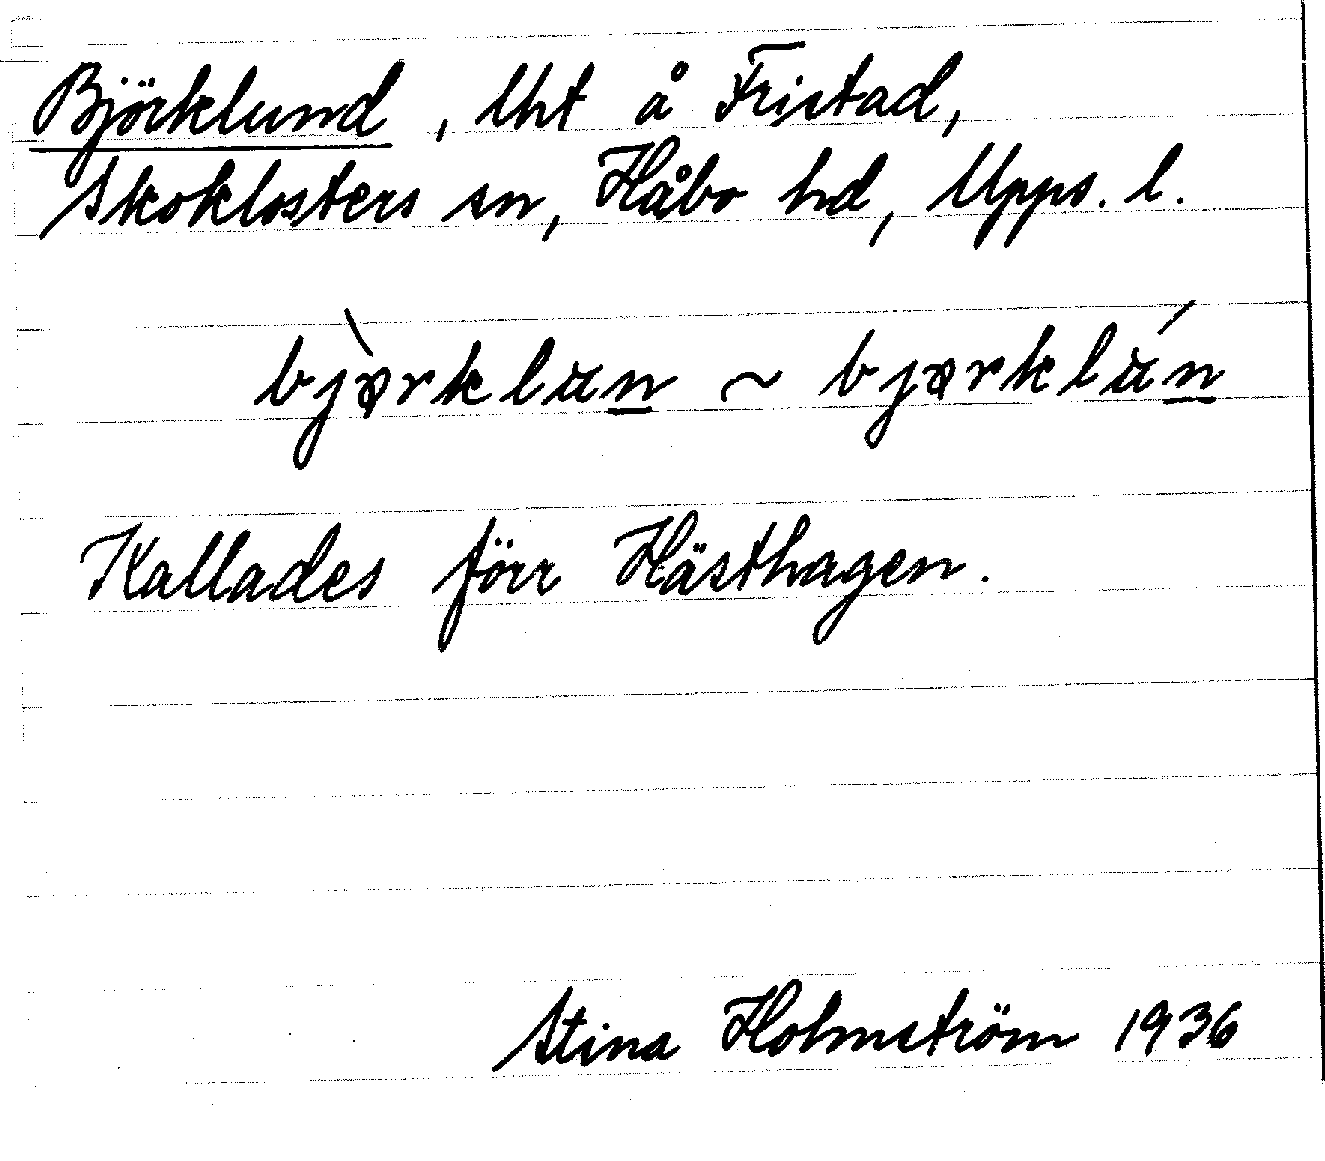 Björklund, Uht å Fristad,
Skoklosters sn, Håbo hd, Upps. l.
Kallades förr Hästhagen.
Stina Holmström 1936